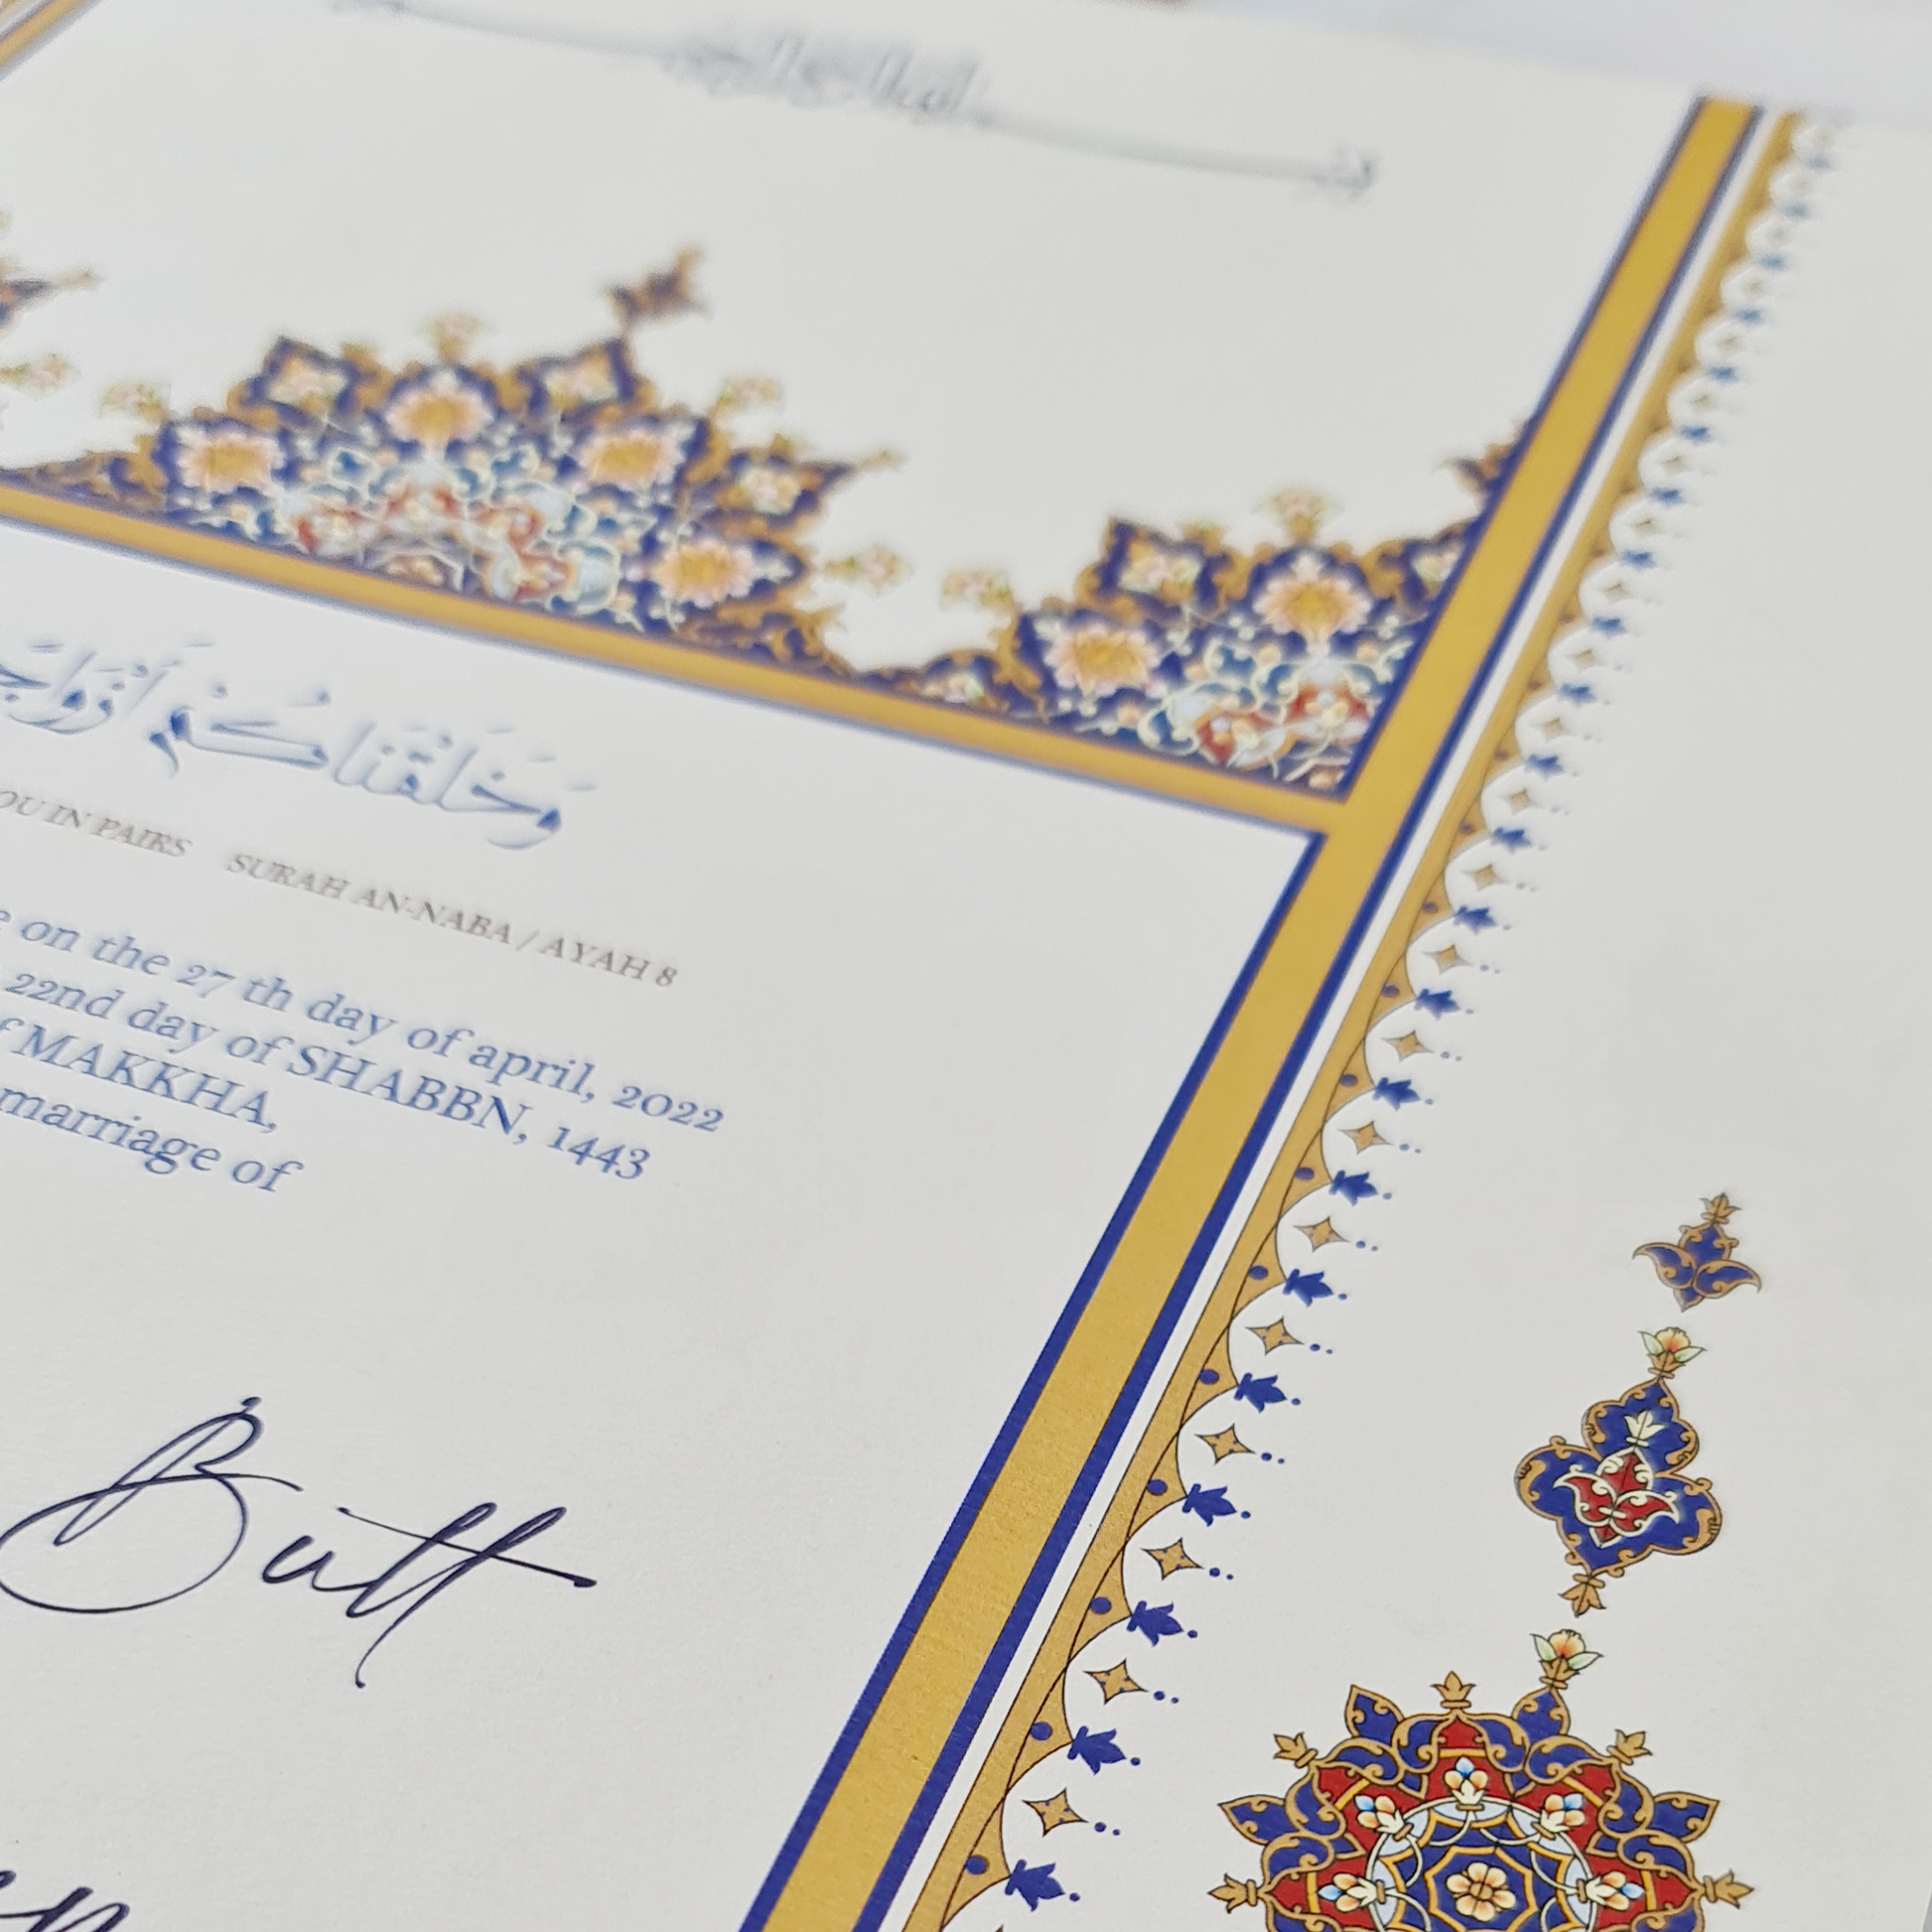 وَخَلَقْنَاكُمْ أَزْوَاجًا
OU IN PAIRS SURAH AN-NABA / AYAH 8
on the 27 th day of april, 2022
22nd day of SHABBN, 1443
MAKKHA,
marriage of
Butt